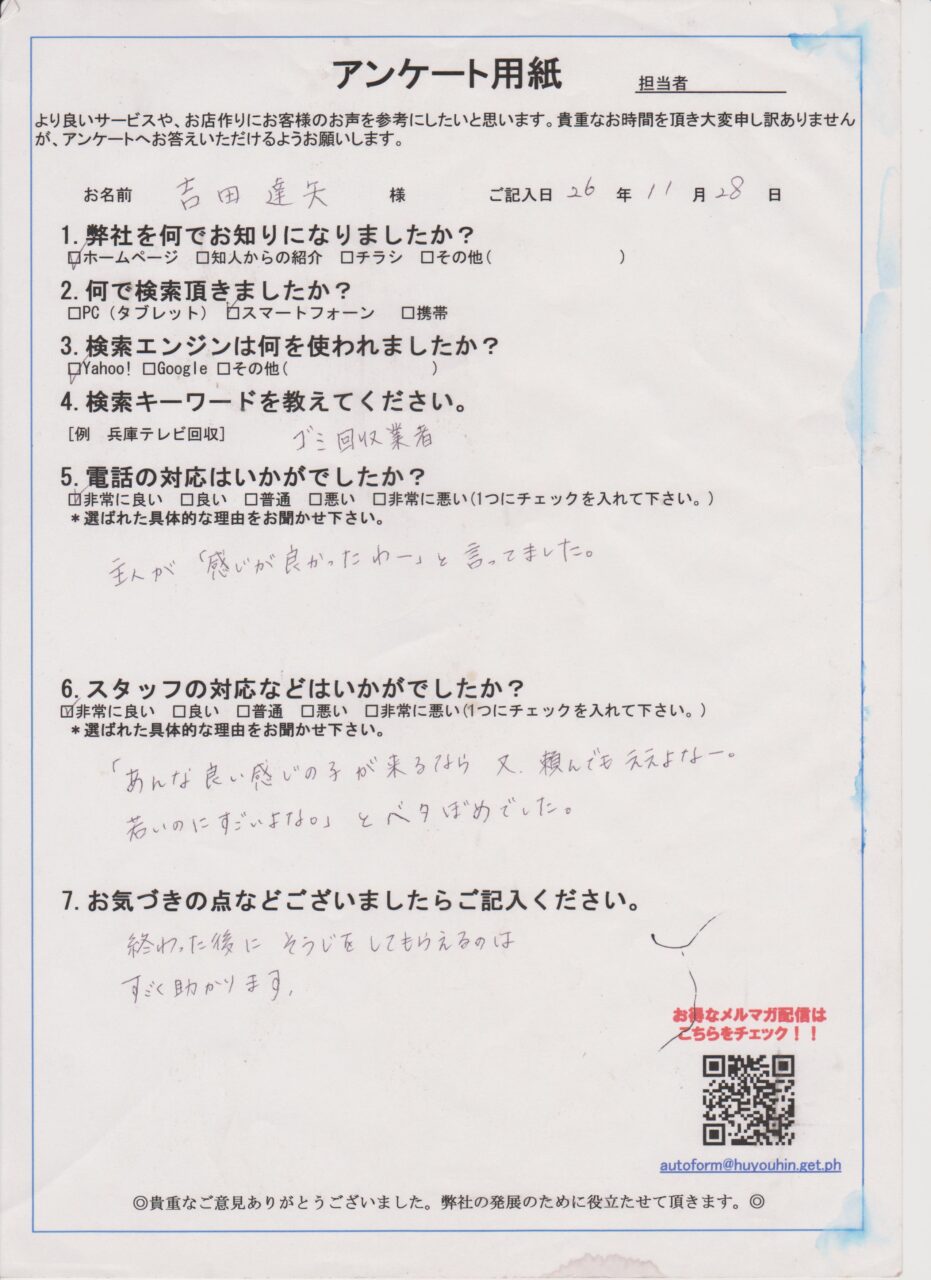 アンケート用紙
担当者
より良いサービスや、お店作りにお客様のお声を参考にしたいと思います。貴重なお時間を頂き大変申し訳ありません
が、アンケートへお答えいただけるようお願いします。
お名前 吉田達矢 様 ご記入日 26 年 11 月 28 日
1. 弊社を何でお知りになりましたか？
☑ホームページ □知人からの紹介 □チラシ □その他( )
2. 何で検索頂きましたか？
□PC（タブレット） ☑スマートフォーン □携帯
3. 検索エンジンは何を使われましたか？
☑Yahoo! □Google □その他( )
4. 検索キーワードを教えてください。
[例 兵庫テレビ回収] ゴミ回収業者
5. 電話の対応はいかがでしたか？
☑非常に良い □良い □普通 □悪い □非常に悪い(1つにチェックを入れて下さい。)
＊選ばれた具体的な理由をお聞かせ下さい。
主人が「感じが良かったわー」と言ってました。
6. スタッフの対応などはいかがでしたか？
☑非常に良い □良い □普通 □悪い □非常に悪い(1つにチェックを入れて下さい。)
＊選ばれた具体的な理由をお聞かせ下さい。
「あんな良い感じの子が来るなら 又、頼んでもええよなー。
若いのにすごいよな。」とベタぼめでした。
7. お気づきの点などございましたらご記入ください。
終わった後に そうじをしてもらえるのは
すごく助かります。
お得なメルマガ配信は
こちらをチェック！！
autoform@huyouhin.get.ph
◎貴重なご意見ありがとうございました。弊社の発展のために役立たせて頂きます。◎